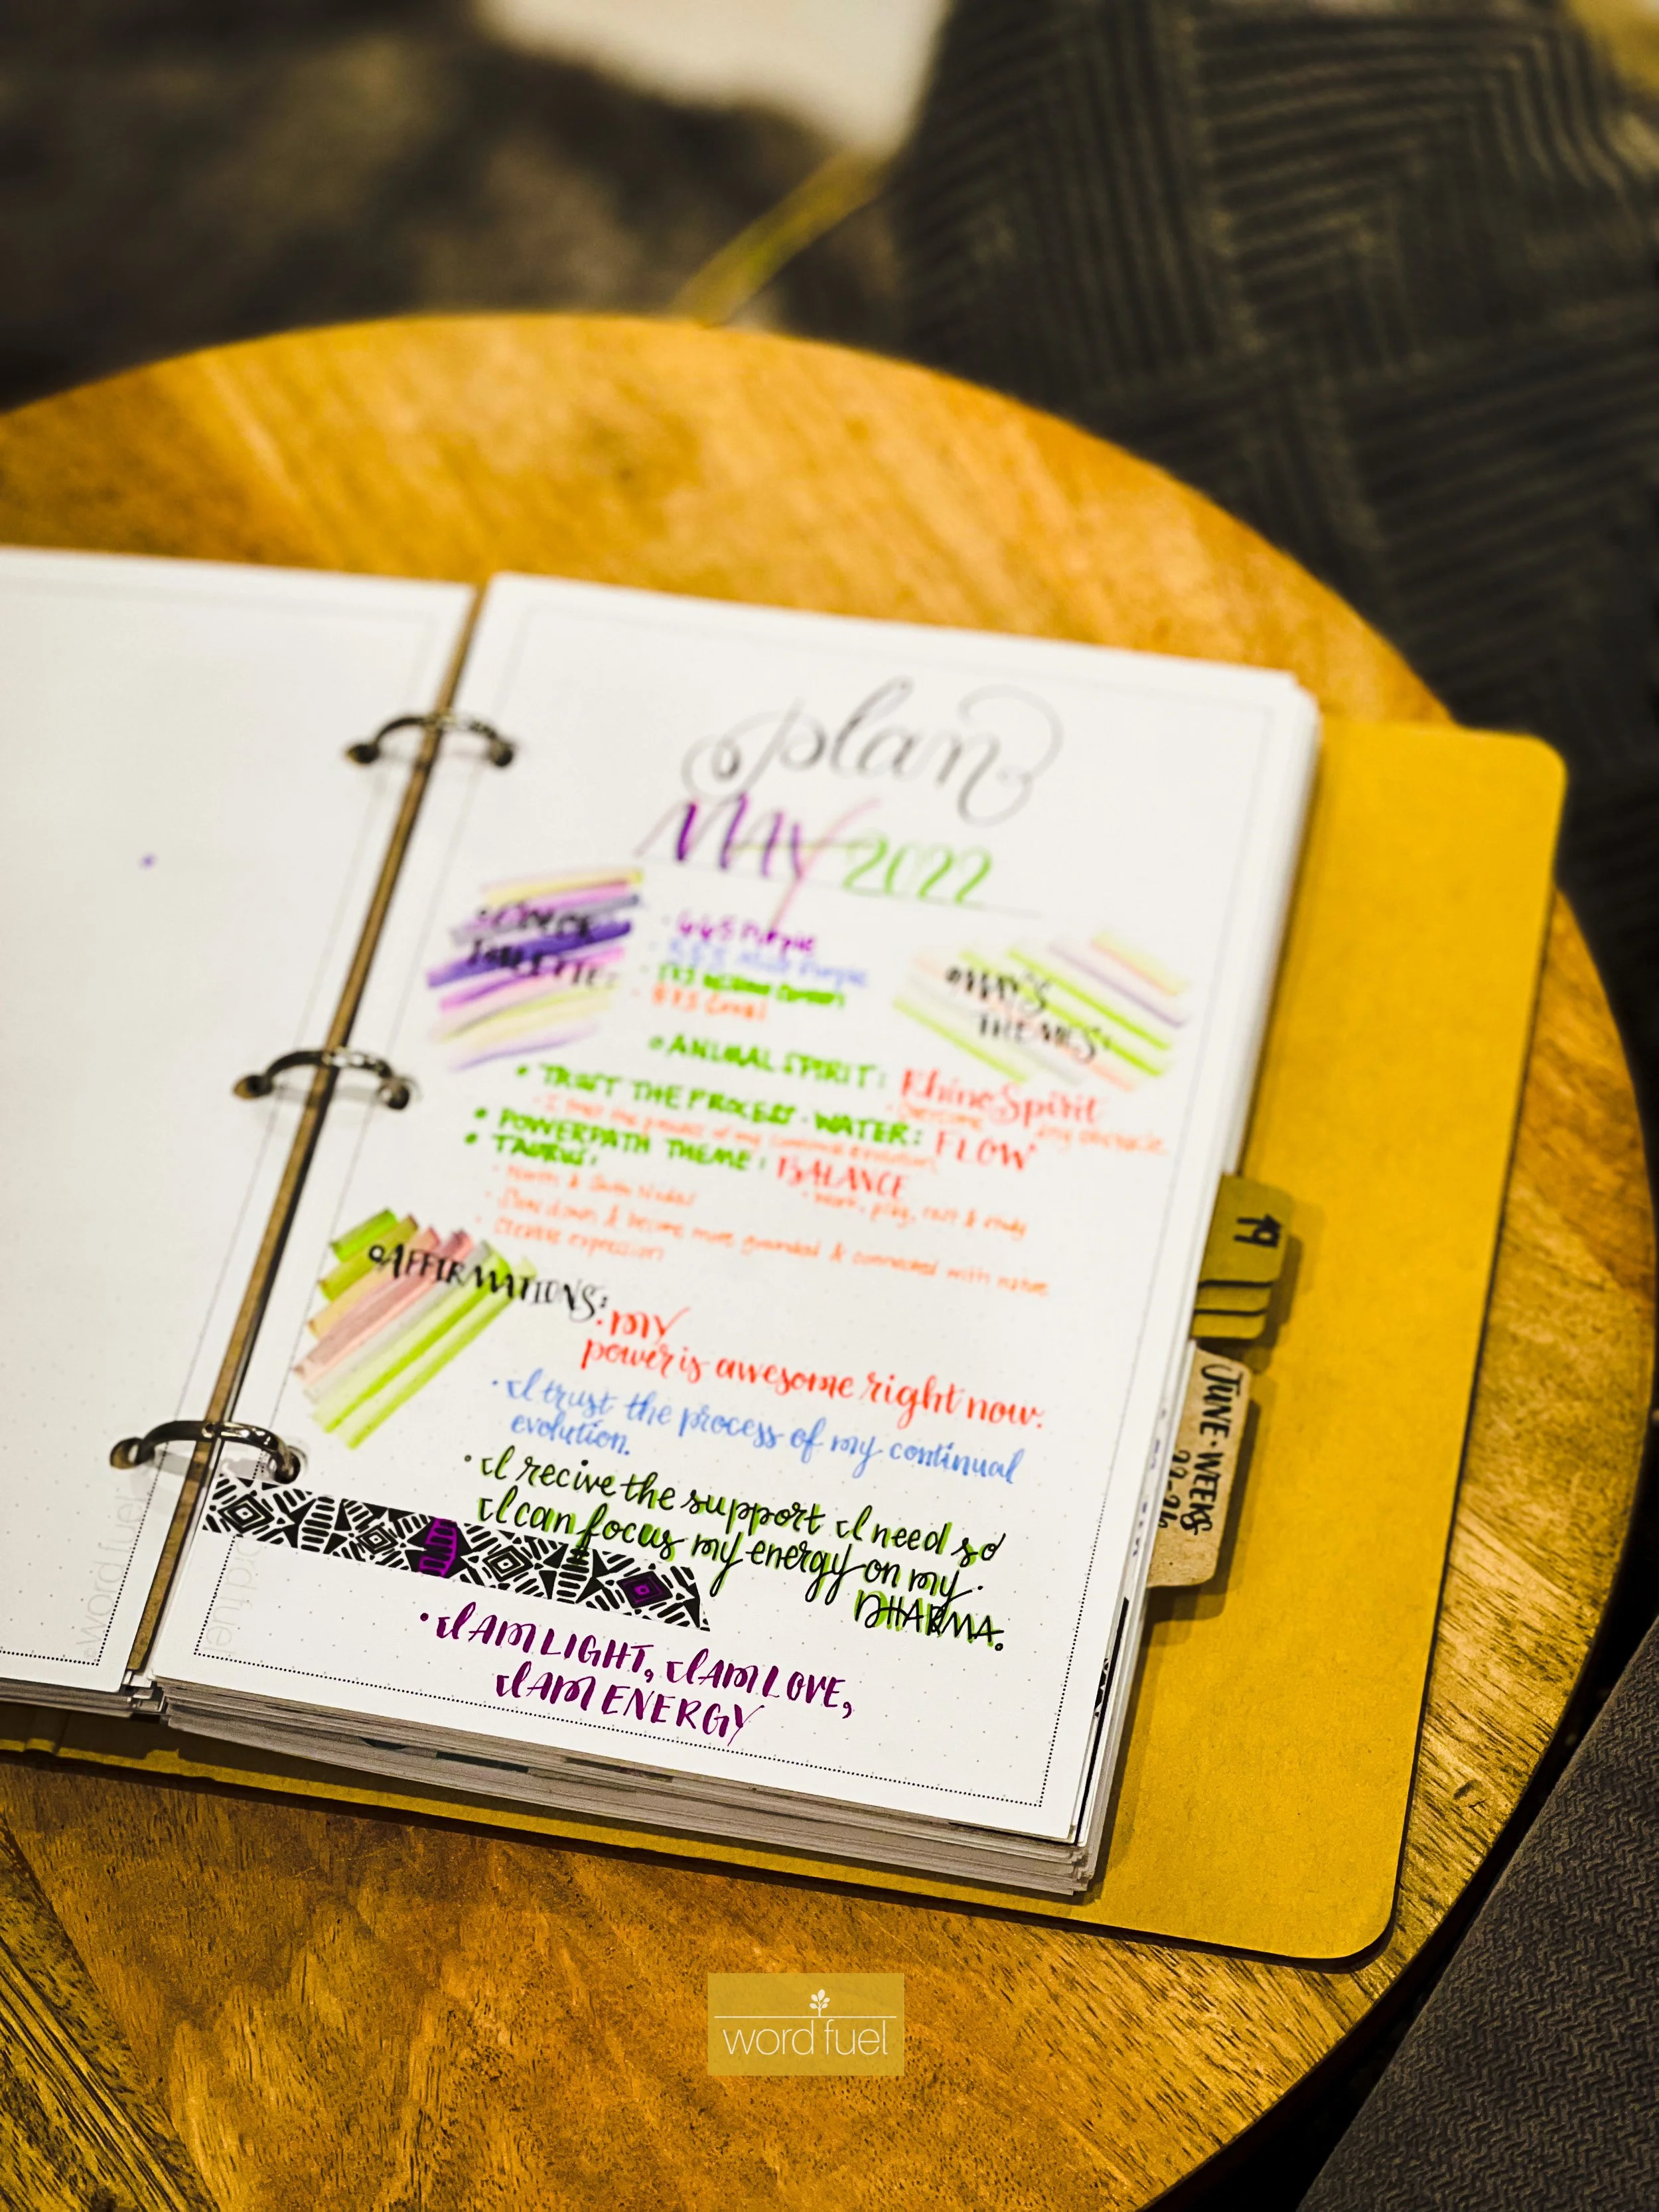 plan
MAY 2022
• COLOR
PALETTE:
• 665 Purple
• 173 Willow Green
• 873 Coral
• MAY'S
THEMES:
• ANIMAL SPIRIT: Rhino Spirit
• Overcome any obstacle
• TRUST THE PROCESS • WATER: FLOW
• I trust the process of my continual evolution
• POWERPATH THEME: BALANCE
• work, play, rest & study
• TAURUS:
• North & South Nodes
• Slow down & become more grounded & connected with nature
• Creative expression
• AFFIRMATIONS:
• MY
power is awesome right now.
• I trust the process of my continual
evolution.
• I recive the support I need so
I can focus my energy on my
DHARMA.
• I AM LIGHT, I AM LOVE,
I AM ENERGY
19
JUNE • WEEKS
22-26
word fuel
wordfuel
word fuel